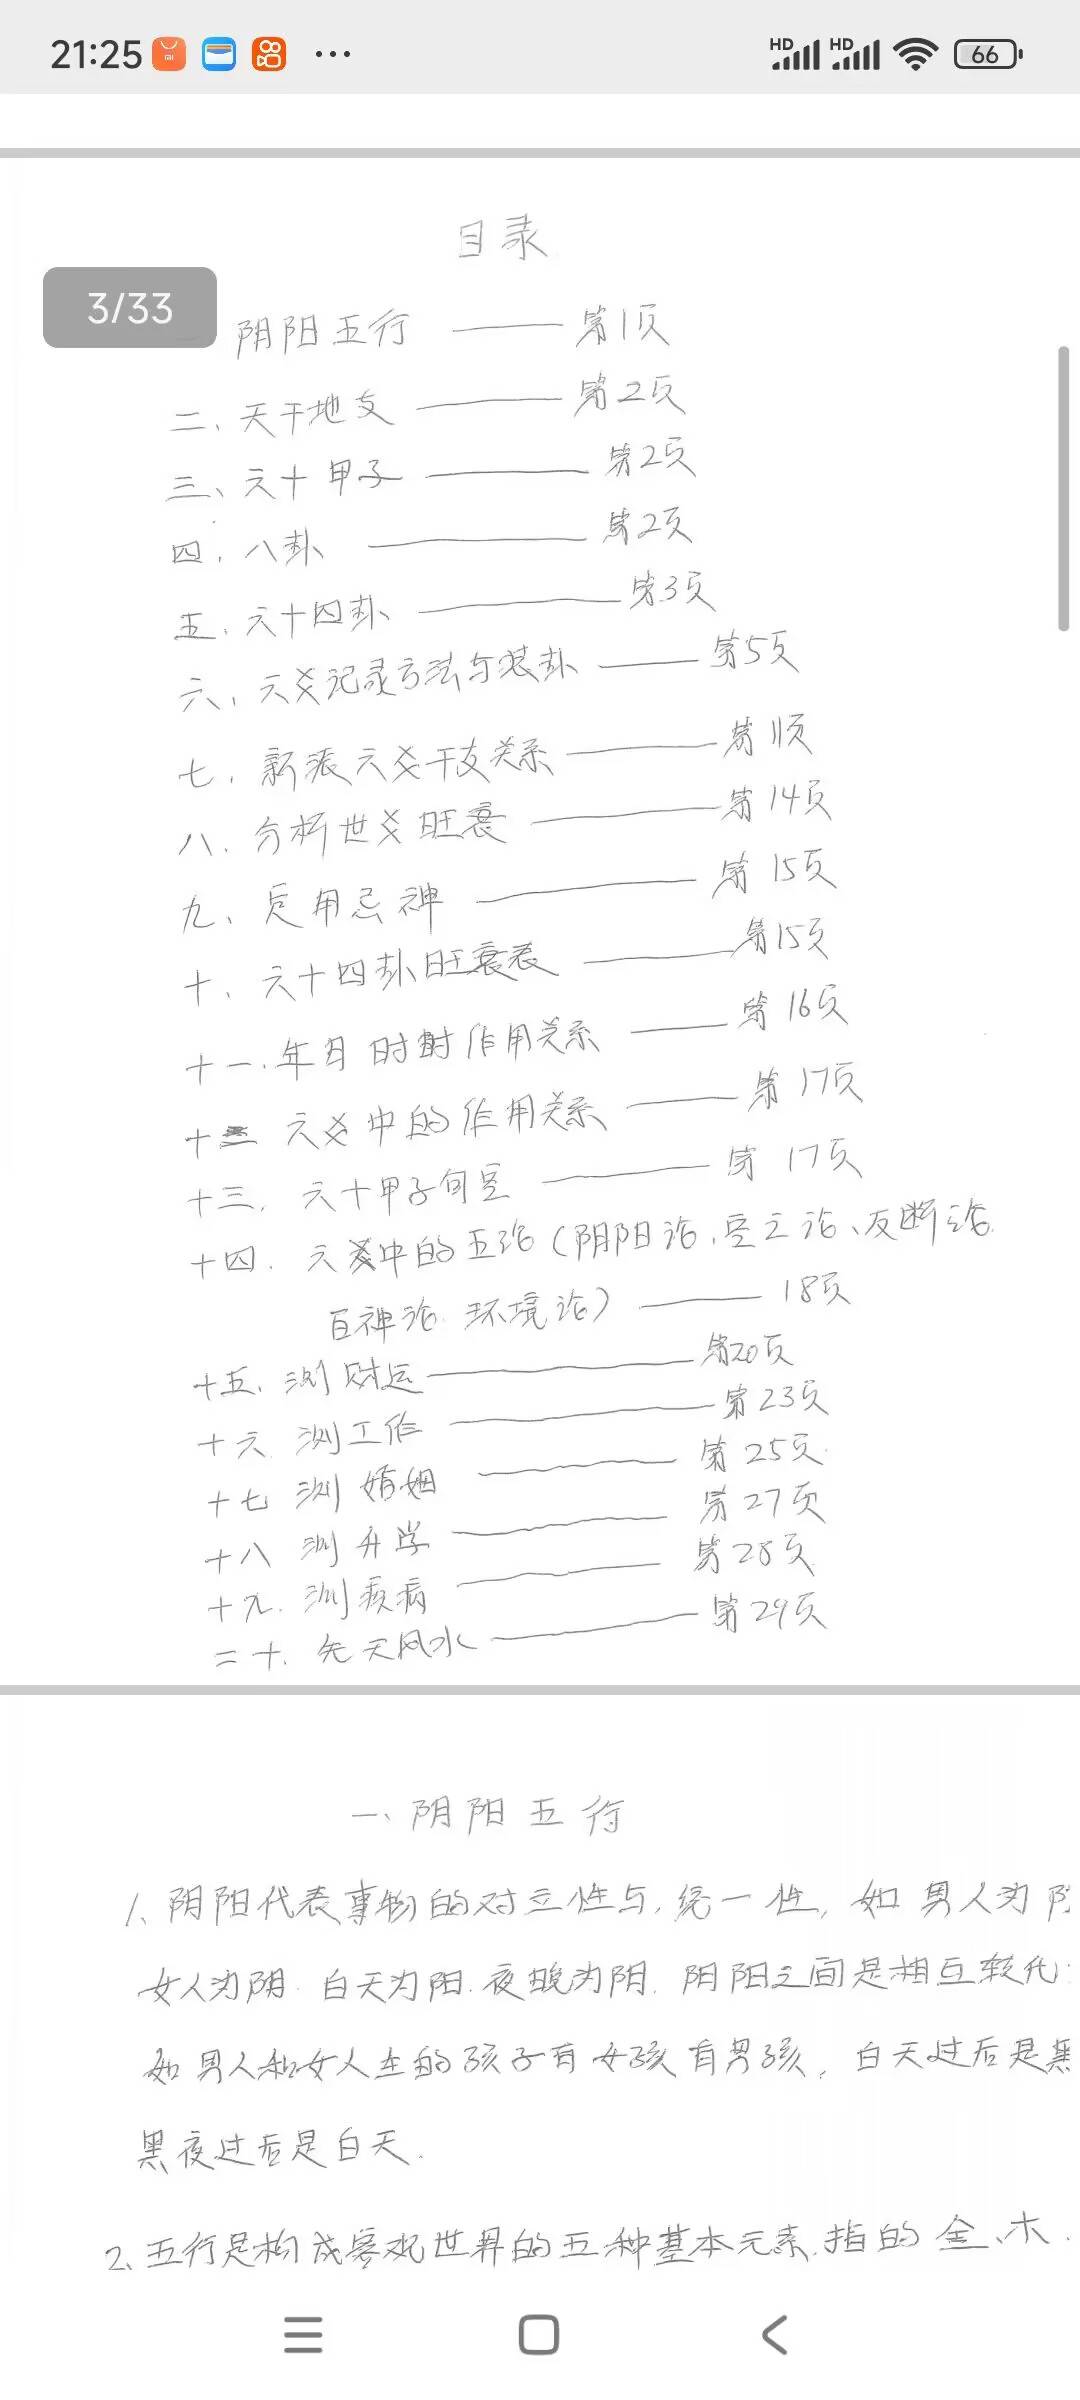 21:25
HD HD 66
目录
3/33
阴阳五行 —— 第1页
二、天干地支 —— 第2页
三、六十甲子 —— 第2页
四、八卦 —— 第2页
五、六十四卦 —— 第3页
六、六爻记录方法与装卦 —— 第5页
七、新派六爻干支关系 —— 第11页
八、分析世爻旺衰 —— 第14页
九、定用忌神 —— 第15页
十、六十四卦旺衰表 —— 第15页
十一、年月日时 作用关系 —— 第16页
十二 六爻中的作用关系 —— 第17页
十三、六十甲子旬空 —— 第17页
十四、六爻中的五论(阴阳论、空亡论、反断论、
百神论、环境论) —— 18页
十五、测财运 —— 第20页
十六、测工作 —— 第23页
十七 测婚姻 —— 第25页
十八 测升学 —— 第27页
十九、测疾病 —— 第28页
二十、先天风水 —— 第29页
一、阴阳五行
1、阴阳代表事物的对立性与统一性,如男人为阳
女人为阴.白天为阳.夜晚为阴.阴阳之间是相互转化
如男人和女人生的孩子有女孩有男孩,白天过后是黑
黑夜过后是白天.
2、五行是构成客观世界的五种基本元素.指的金、木、